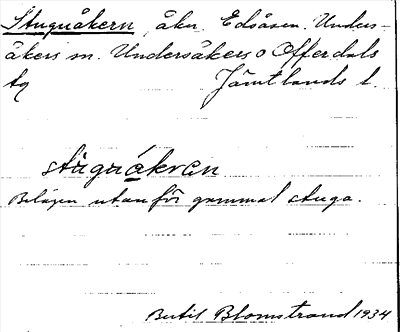 Stuguåkern, åker. Edsåsen. Unders-
åkers sn. Undersåkers o Offerdals
tg Jämtlands l.
stùguákran
Belägen utanför gammal stuga.
Bertil Blomstrand 1934